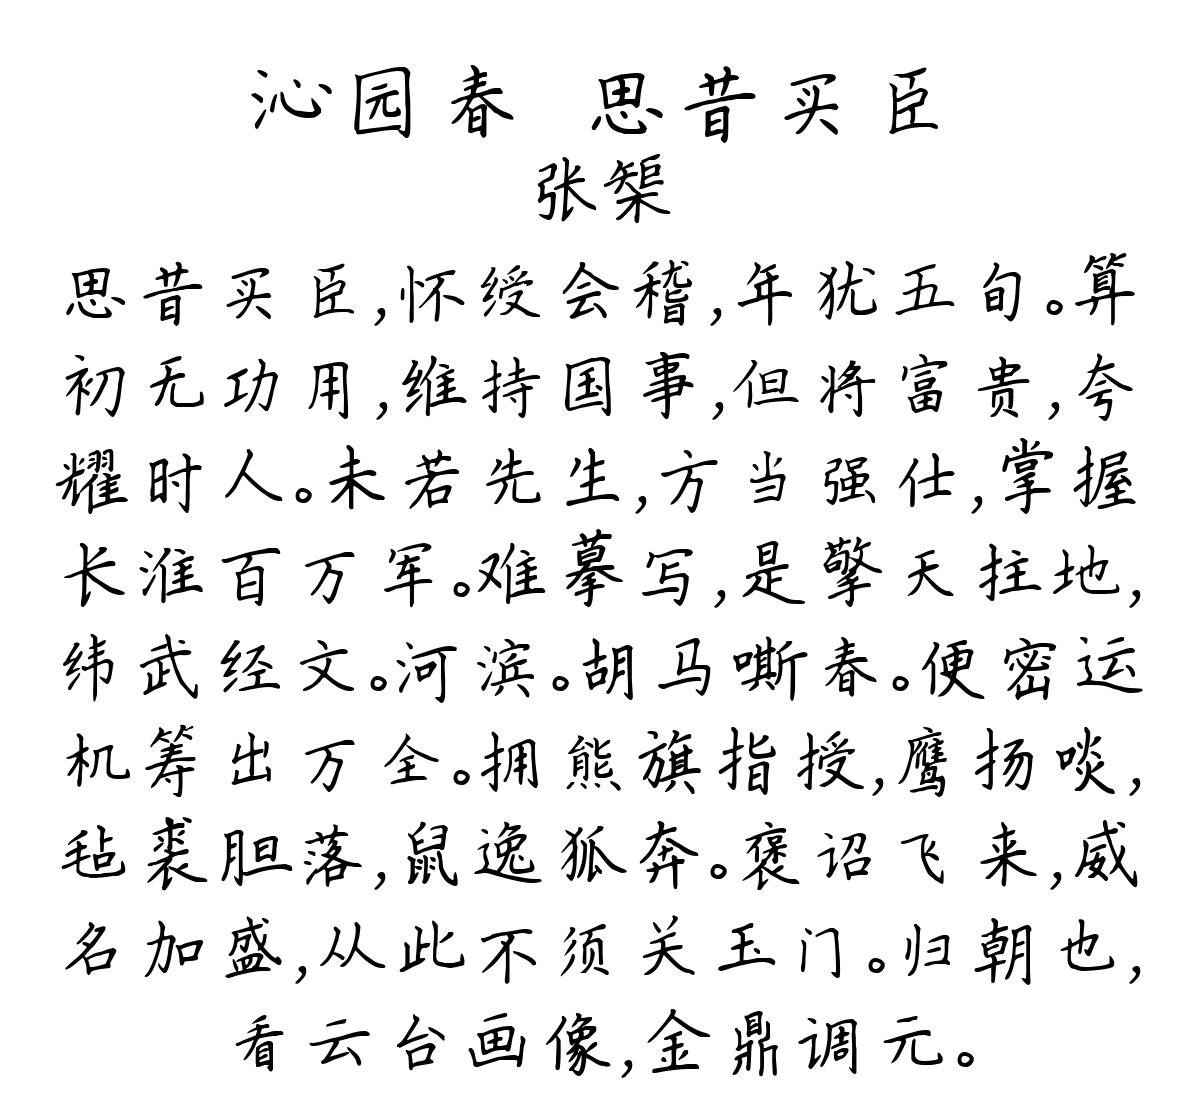 沁园春 思昔买臣
张榘
思昔买臣,怀绶会稽,年犹五旬。算
初无功用,维持国事,但将富贵,夸
耀时人。未若先生,方当强仕,掌握
长淮百万军。难摹写,是擎天拄地,
纬武经文。河滨。胡马嘶春。便密运
机筹出万全。拥熊旗指授,鹰扬啖,
毡裘胆落,鼠逸狐奔。褒诏飞来,威
名加盛,从此不须关玉门。归朝也,
看云台画像,金鼎调元。